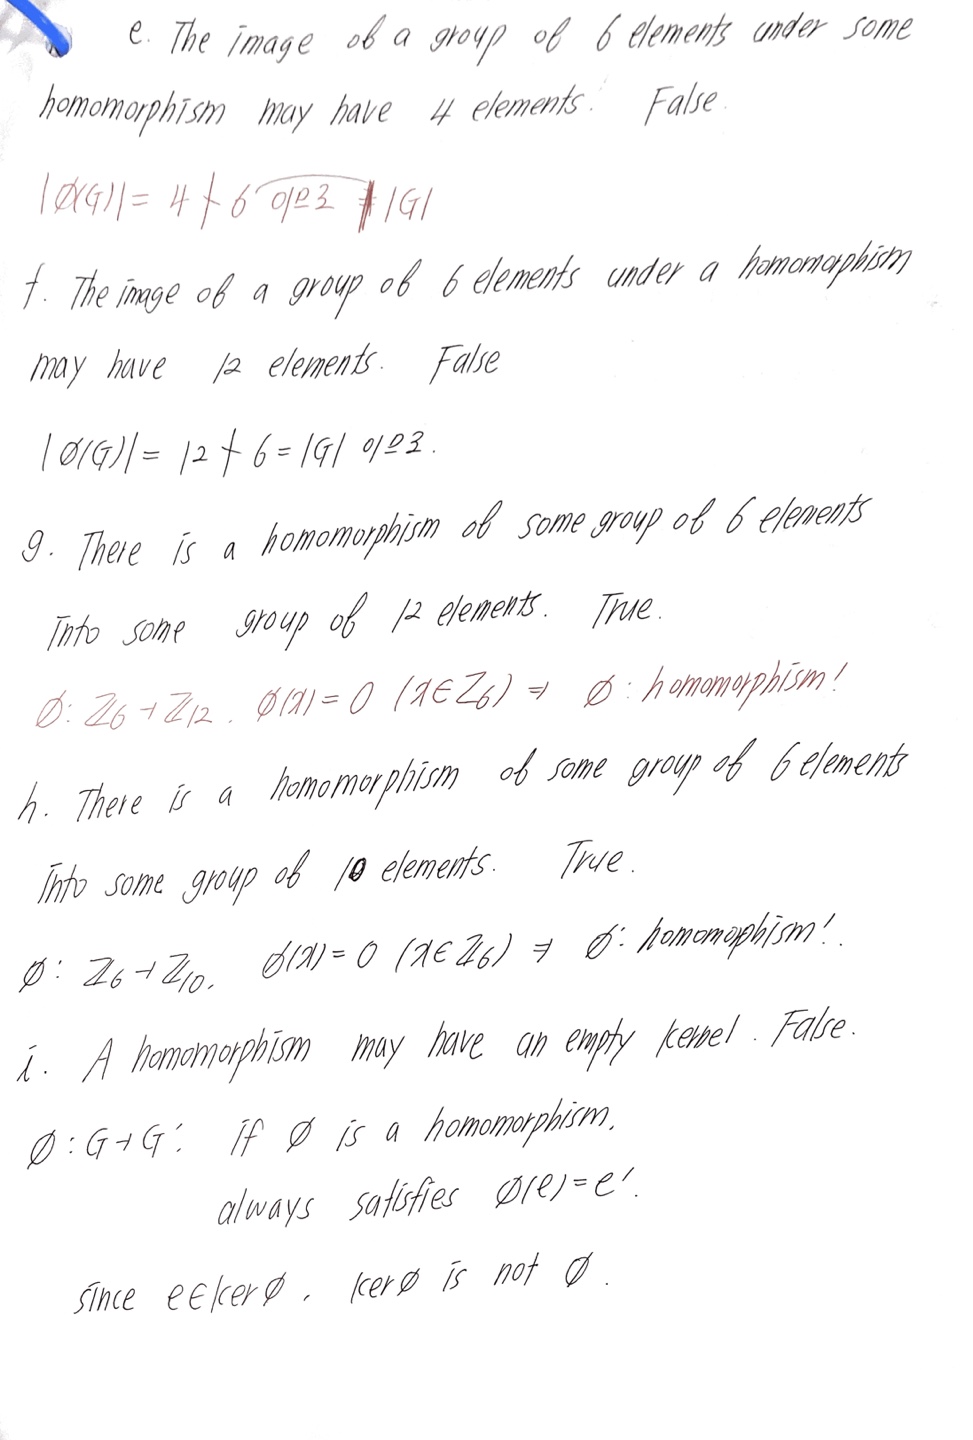 e. The image of a group of 6 elements under some
homomorphism may have 4 elements. False.
|ø(G)| = 4 ∤ 6 이므로 |G|
f. The image of a group of 6 elements under a homomorphism
may have 12 elements. False
|ø(G)| = 12 ∤ 6 = |G| 이므로.
g. There is a homomorphism of some group of 6 elements
into some group of 12 elements. True.
ø: ℤ6 → ℤ12. ø(x) = 0 (x∈ℤ6) ⇒ ø: homomorphism!
h. There is a homomorphism of some group of 6 elements
into some group of 10 elements. True.
ø: ℤ6 → ℤ10. ø(x) = 0 (x∈ℤ6) ⇒ ø: homomophism!.
i. A homomorphism may have an empty kernel. False.
ø: G → G': if ø is a homomorphism,
always satisfies ø(e) = e'.
since e∈kerø, kerø is not ø.